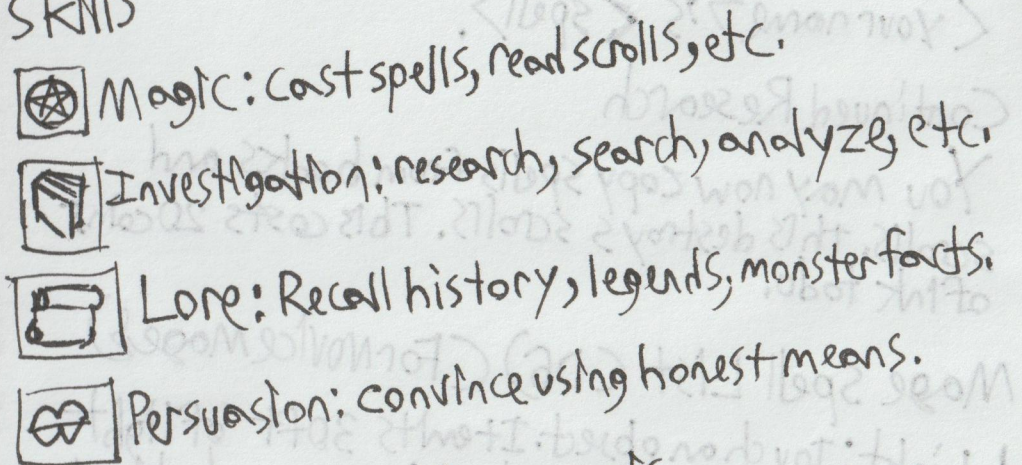 Skills
Magic: cast spells, read scrolls, etc.
Investigation: research, search, analyze, etc.
Lore: Recall history, legends, monster facts.
Persuasion: convince using honest means.